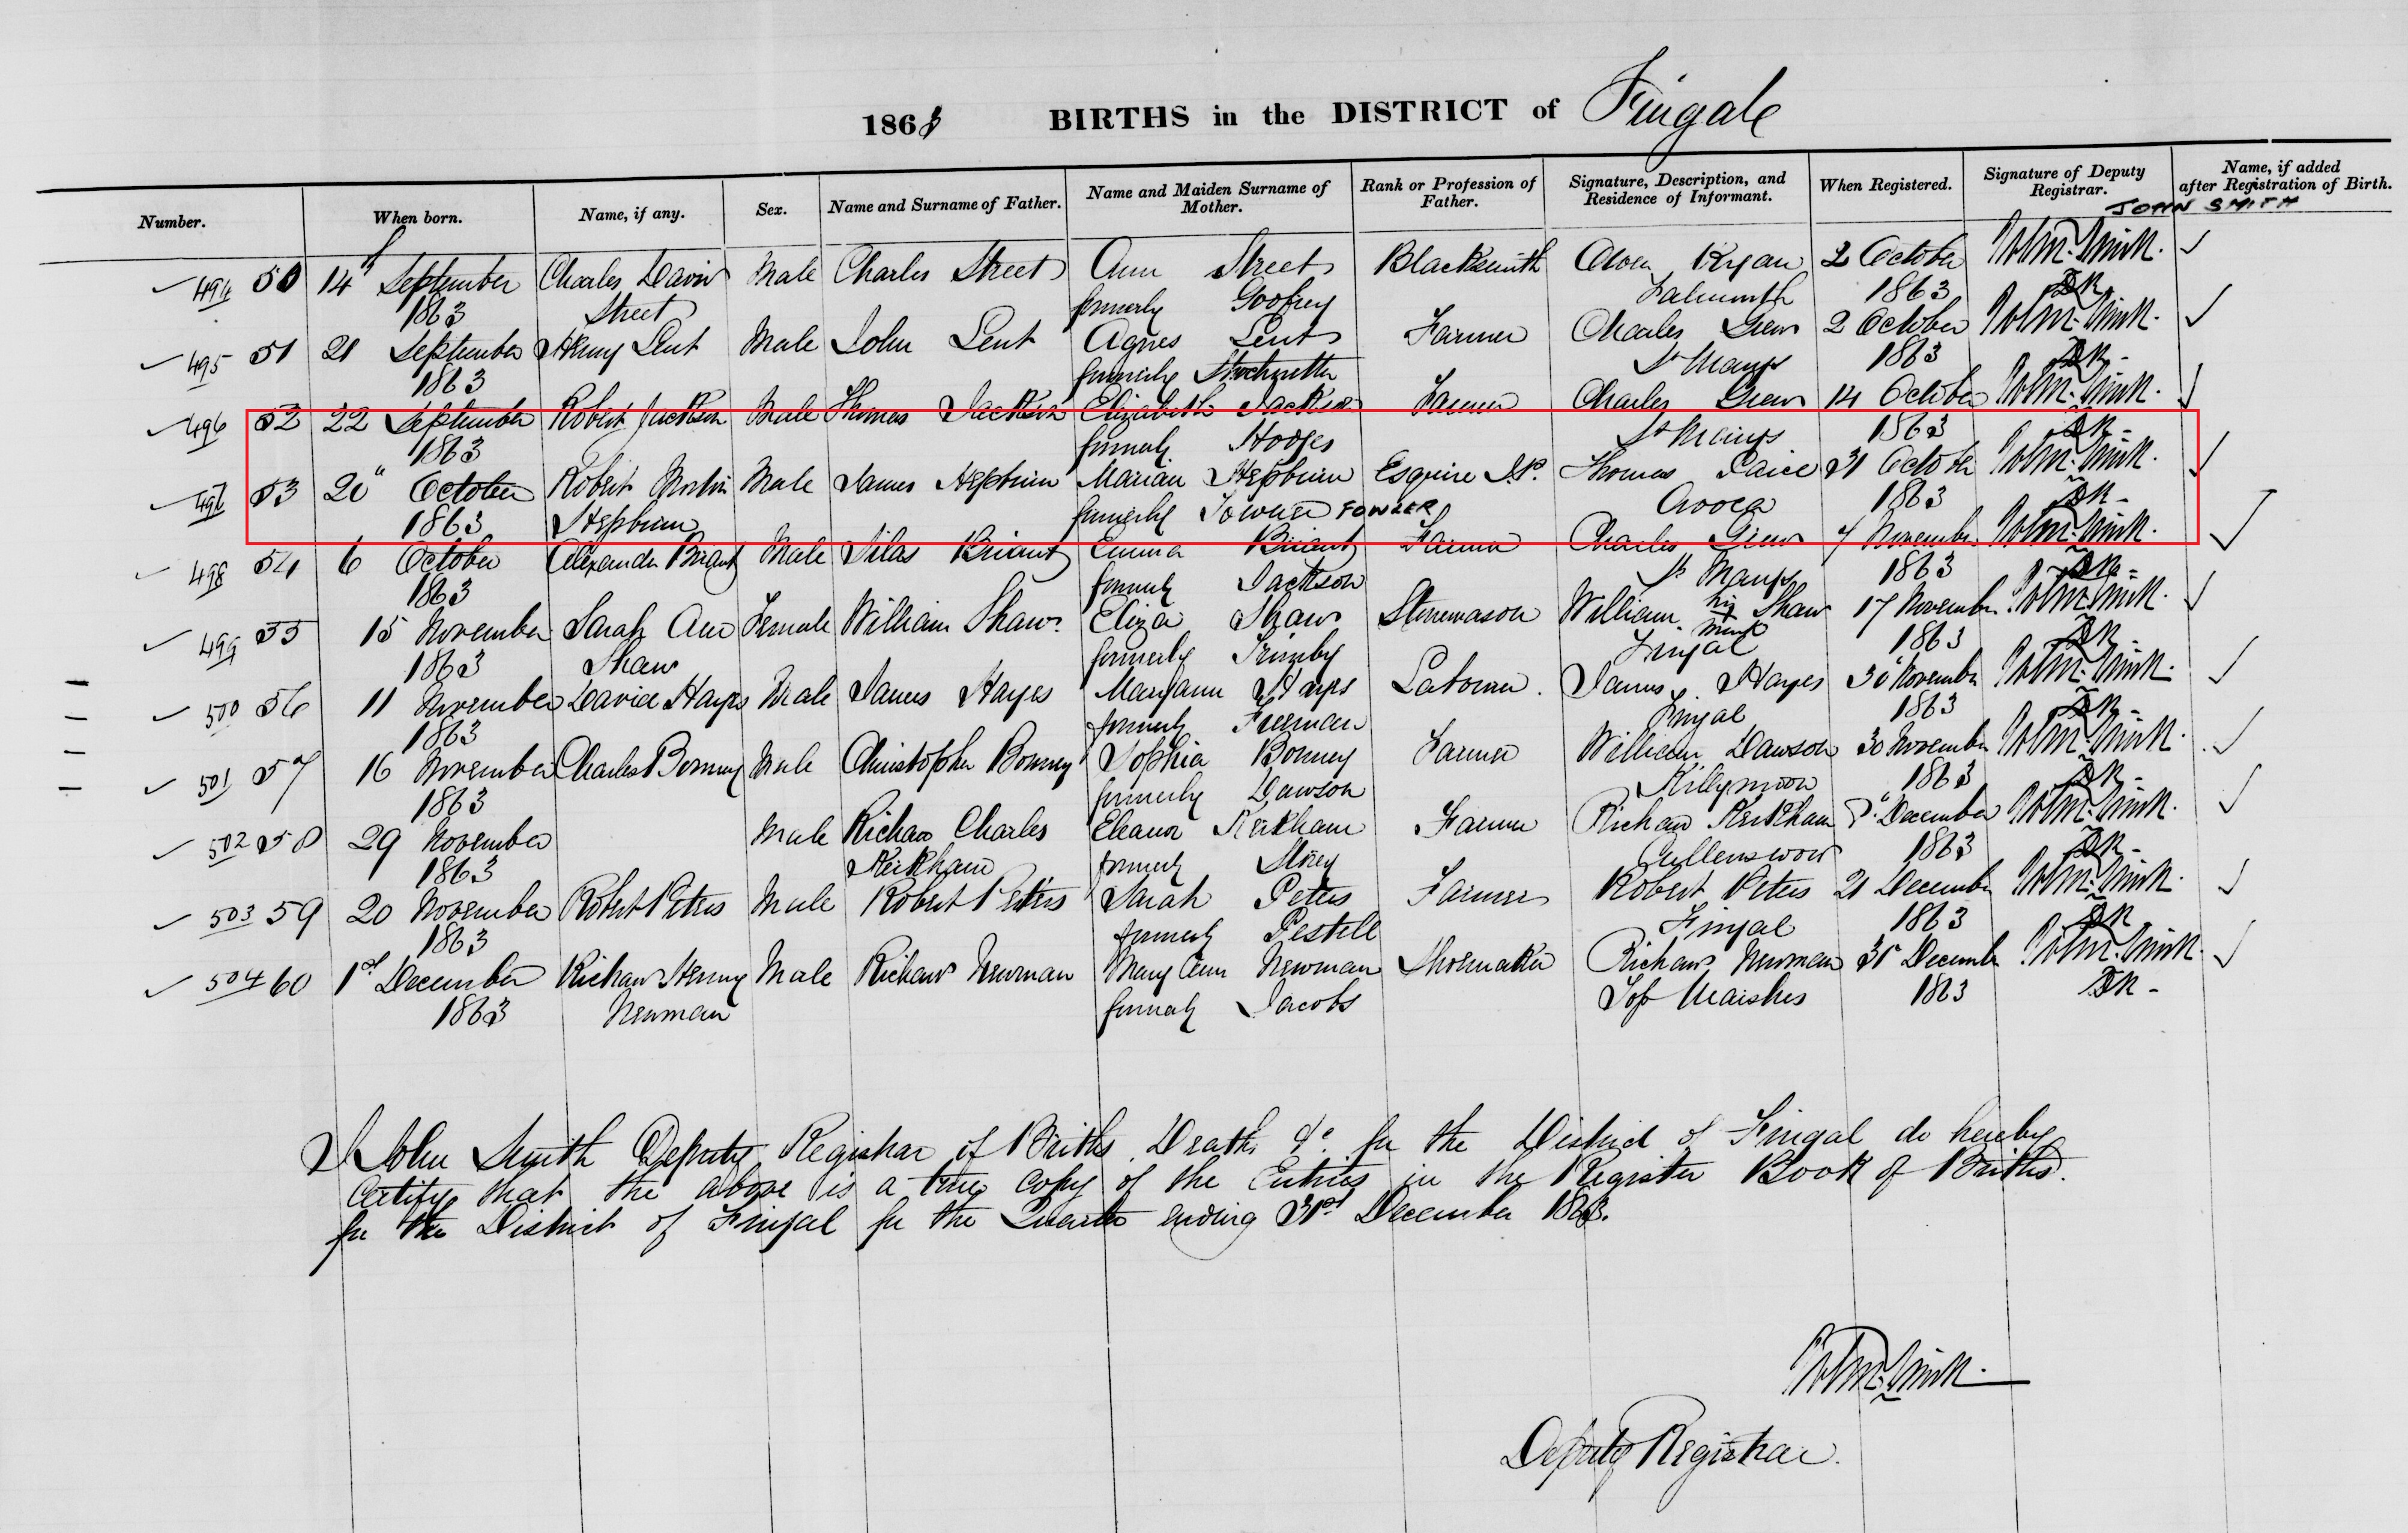 1863 BIRTHS in the DISTRICT of Fingale
Number. When born. Name, if any. Sex. Name and Surname of Father. Name and Maiden Surname of Mother. Rank or Profession of Father. Signature, Description, and Residence of Informant. When Registered. Signature of Deputy Registrar. Name, if added after Registration of Birth.
JOHN SMITH
494 50 14 September Charles David Male Charles Street Ann Street Blacksmith Owen Ryan 2 October John Smith
1863 Street formerly Godfrey Falmouth 1863 DR
495 51 21 September Henry Lent Male John Lent Agnes Lent Farmer Charles Grew 2 October John Smith
1863 formerly St Marys 1863 DR
496 52 22 September Robert Jackson Male Thomas Jackson Elizabeth Jackson Farmer Charles Grew 14 October John Smith
1863 formerly Hodges St Marys 1863 DR
497 53 20" October Robert Male James Hepburn Marian Hepburn Esquire J.P. Thomas 31 October John Smith
1863 Hepburn formerly FOWLER Avoca 1863 DR
498 54 6 October Alexander Briant Male Silas Briant Emma Briant Farmer Charles Grew 7 November John Smith
1863 formerly Jackson St Marys 1863 DR
499 55 15 November Sarah Ann Female William Shaw Eliza Shaw Stonemason William his Shaw 17 November John Smith
1863 Shaw formerly Trimby mark Fingal 1863 DR
500 56 11 November David Hayes Male James Hayes Maryann Hayes Labourer James Hayes 30 November John Smith
1863 formerly Freeman Fingal 1863 DR
501 57 16 November Charles Bonney Male Christopher Bonney Sophia Bonney Farmer William Dawson 30 November John Smith
1863 formerly Dawson Killymoon 1863 DR
502 58 29 November Male Richard Charles Eleanor Kirkham Farmer Richard Kirkham December John Smith
1863 Kirkham formerly Cullenswood 1863 DR
503 59 20 November Robert Peters Male Robert Peters Sarah Peters Farmer Robert Peters 21 December John Smith
1863 formerly Pestell Fingal 1863 DR
504 60 1st December Richard Henry Male Richard Newman Mary Ann Newman Shoemaker Richard Newman 31 December John Smith
1863 Newman formerly Jacobs Top Marshes 1863 DR
I John Smith Deputy Registrar of Births Deaths &c for the District of Fingal do hereby
Certify that the above is a true Copy of the Entries in the Register Book of Births
for the District of Fingal for the Quarter ending 31st December 1863.
John Smith
Deputy Registrar.